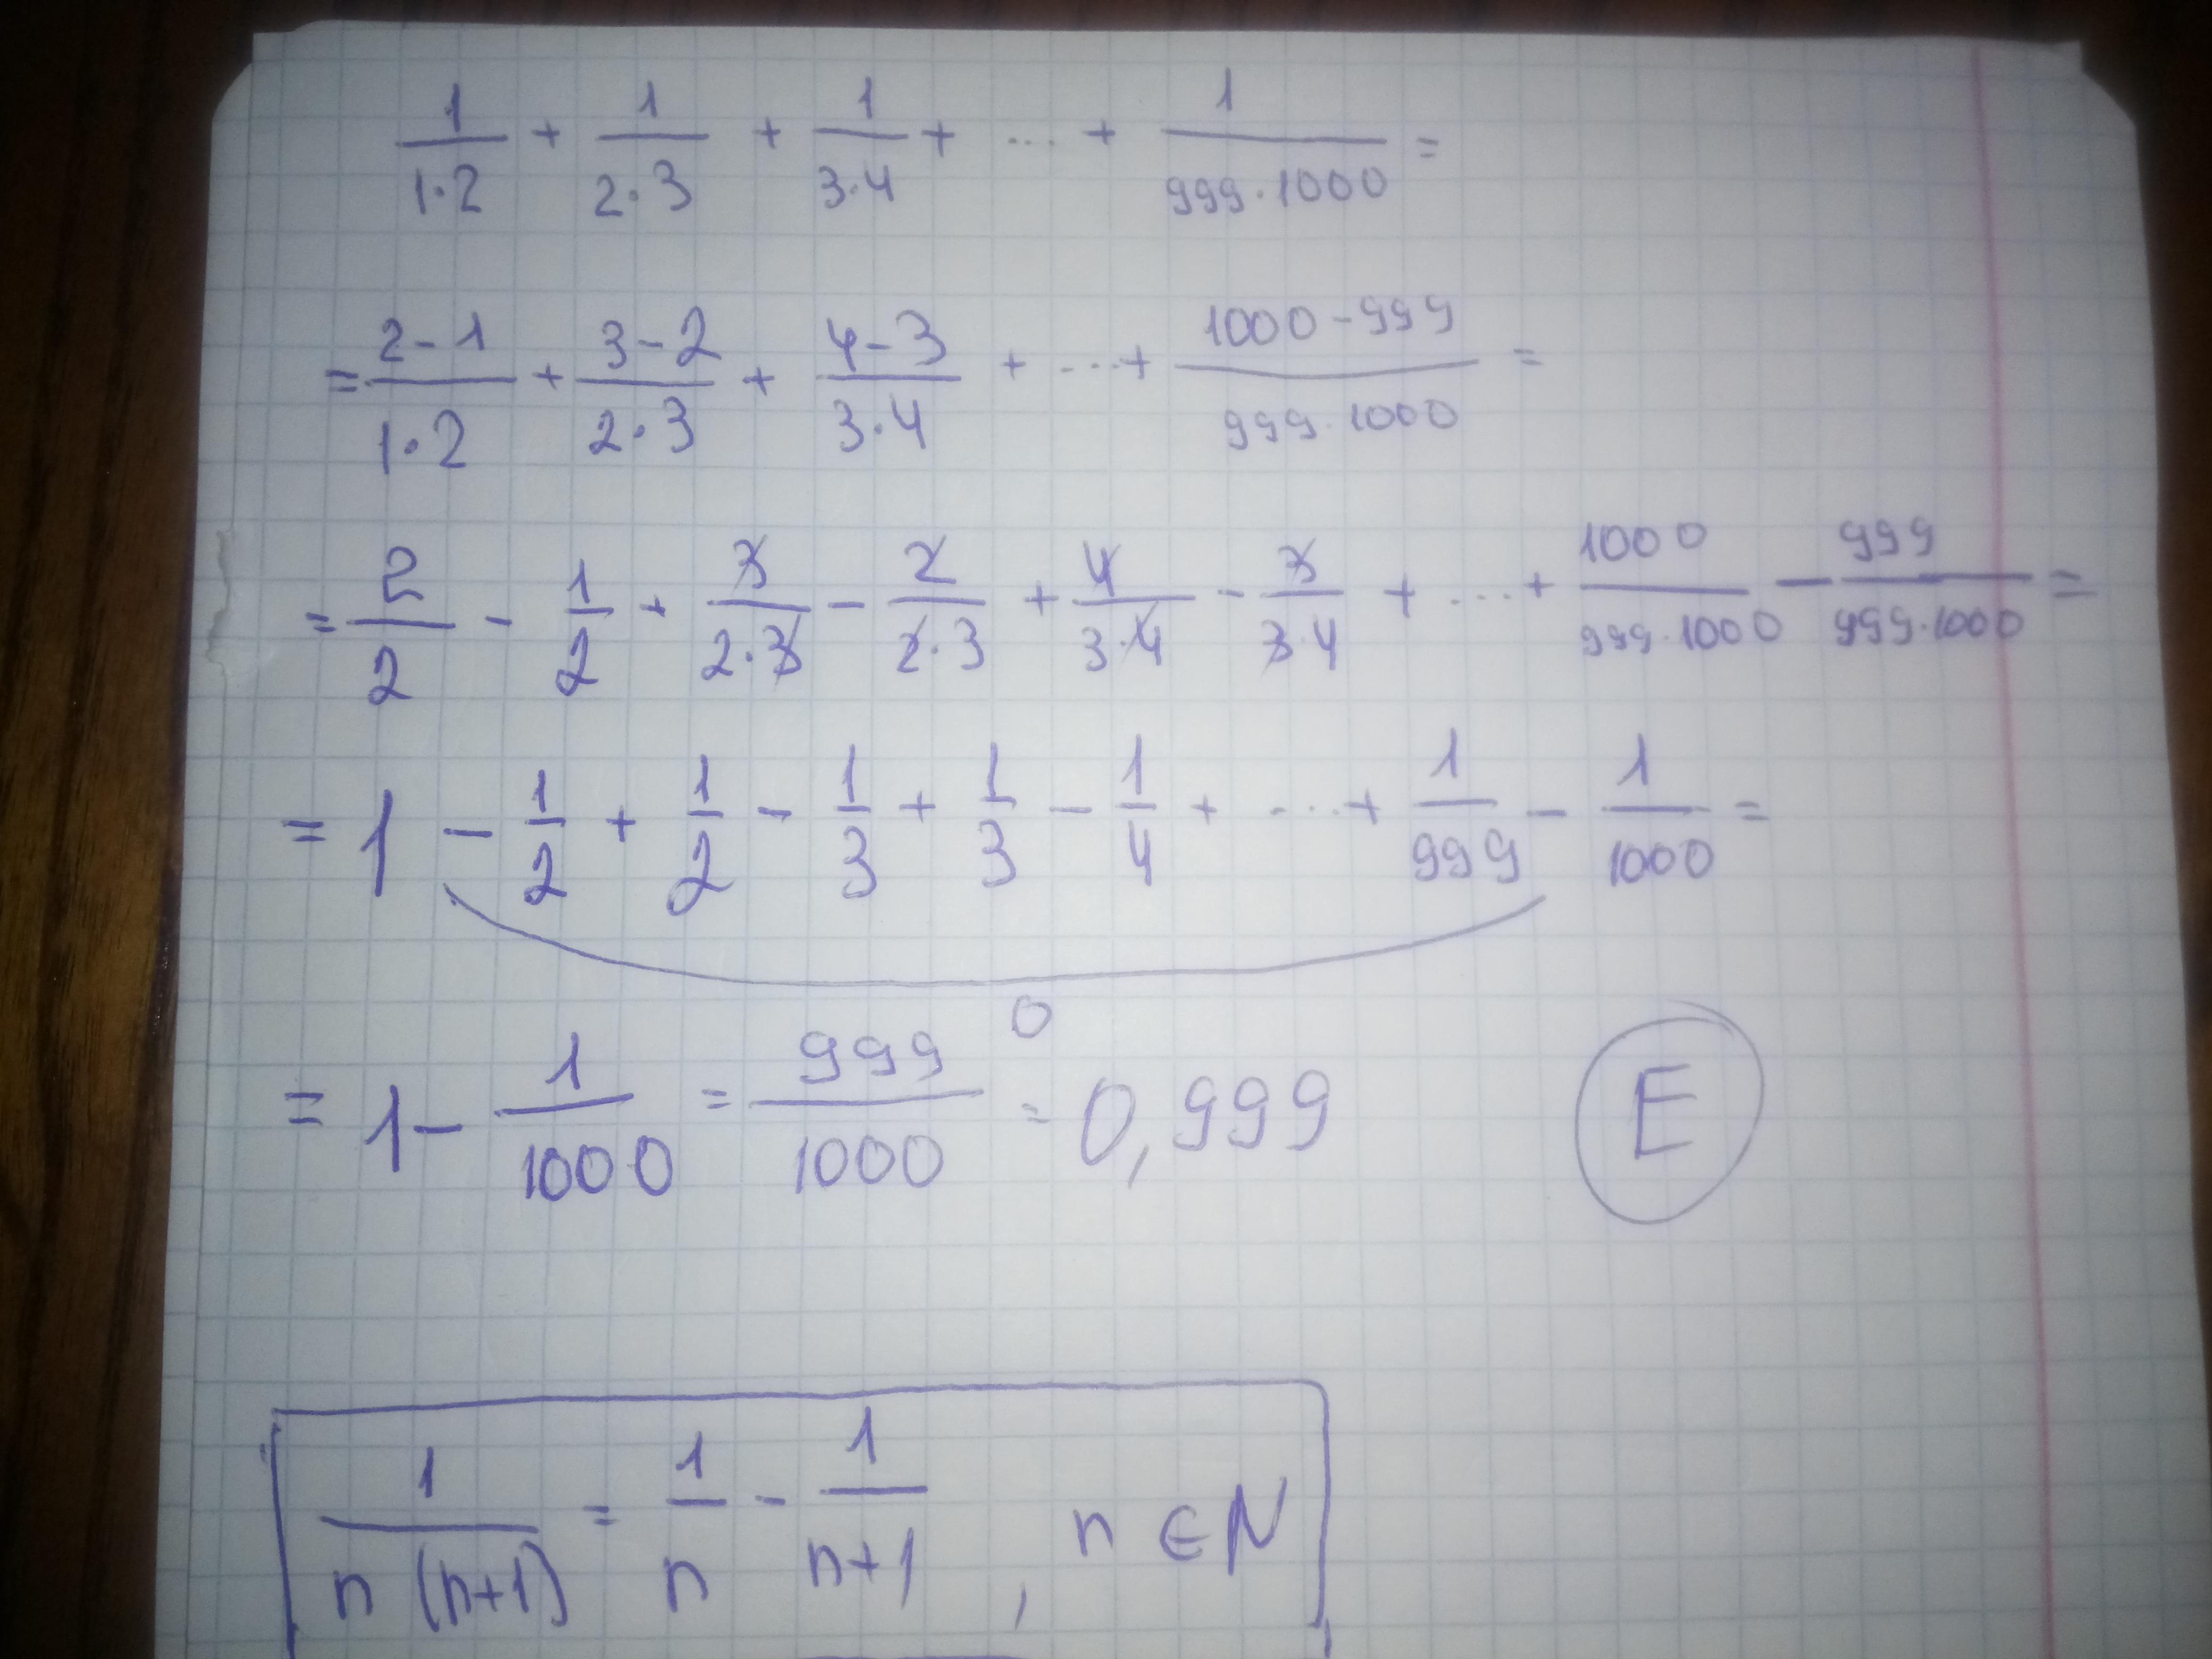 1/(1·2) + 1/(2·3) + 1/(3·4) + ... + 1/(999·1000) =
= (2-1)/(1·2) + (3-2)/(2·3) + (4-3)/(3·4) + ... + (1000-999)/(999·1000) =
= 2/2 - 1/2 + 3/(2·3) - 2/(2·3) + 4/(3·4) - 3/(3·4) + ... + 1000/(999·1000) - 999/(999·1000) =
= 1 - 1/2 + 1/2 - 1/3 + 1/3 - 1/4 + ... + 1/999 - 1/1000 =
0
= 1 - 1/1000 = 999/1000 = 0,999
E
1/(n(n+1)) = 1/n - 1/(n+1), n ∈ N